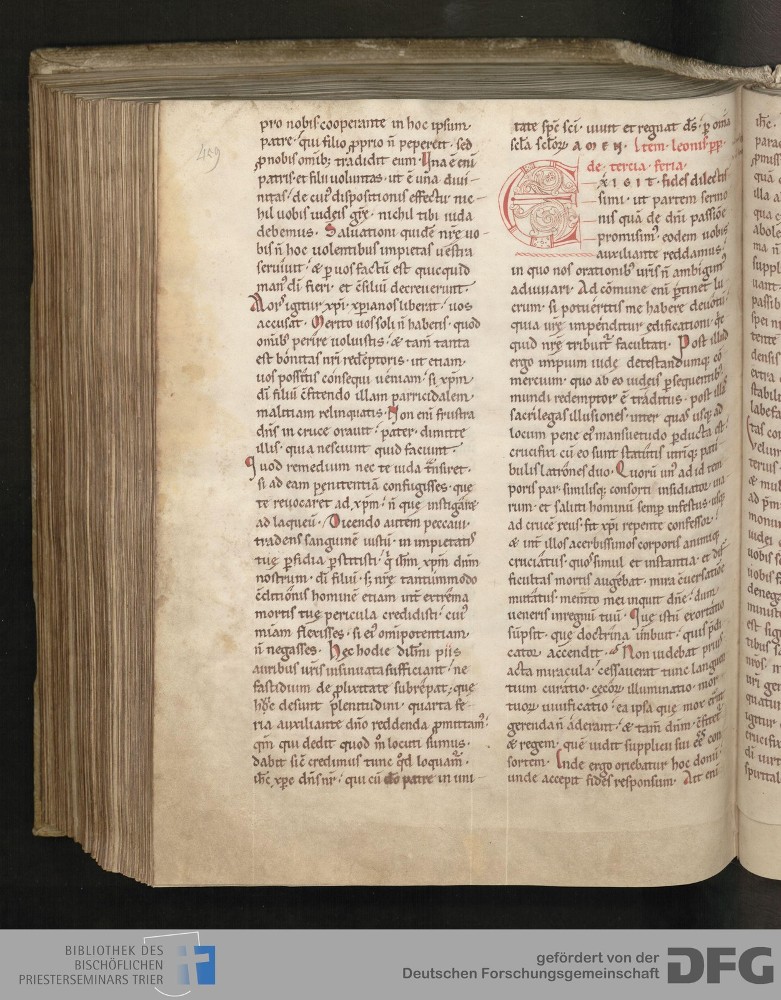 459
pro nobis cooperante in hoc ipsum
patre · qui filio ꝓprio n̄ pepercit · sed
ꝓ nobis omīb; tradidit eum · Una ē eni
patris et filii uoluntas · ut ē una diui-
nitas / de cuiꝰ dispositionis effectu nic-
hil uobis iudeis gr̄e · nichil tibi iuda
debemus · Saluationi quidē nr̄e uo-
bis n̄ hoc uolentibus impietas uestra
seruiuit / & ꝑ uos factū est quicquid
manꝰ dī fieri · et c̄silium decreuerunt ·
Mors igitur xp̄i · xp̄ianos liberat / uos
accusat · Merito uos soli n̄ habetis · quod
omīb; perire uoluistis · & tam̄ tanta
est bonitas nr̄i redēptoris · ut etiam
uos possitis consequi ueniam / si xp̄m
dī filiū c̄fitendo illam parricidalem
malitiam relinquatis · Non eni frustra
dn̄s in cruce orauit · pater · dimitte
illis · quia nesciunt quid faciunt ·
Quod remedium nec te iuda t̄nsiret ·
si ad eam penitentiā confugisses · que
te reuocaret ad xp̄m / n̄ que instigaret
ad laqueū · Dicendo autem peccaui ·
tradens sanguinē iustū · in impietatis
tuę ꝑfidia ꝑstitisti · q̄ ihm̄ xp̄m dn̄m
nostrum · dī filiū · s; nr̄e tantūmodo
c̄ditionis hominē etiam int̄ extrema
mortis tuę pericula credidisti · cuiꝰ
miam̄ flexisses · si eiꝰ omīpotentiam
n̄ negasses · Hec hodie dilm̄i piis
auribus ur̄is insinuata sufficiant · ne
fastidium de ꝓlixitate subrepat · que
desunt plenitudini · quarta fe-
ria auxiliante dn̄o reddenda ꝓmittam ·
qm̄ qui dedit quod m̊ locuti sumus ·
dabit sic̄ credimus tunc qd̄ loquam̄ ·
ihc̄ xp̄c dn̄s nr̄ · qui cū dō patre in uni-
tate sp̄c sc̄i · uiuit et regnat dς · ꝑ om̄ia
sc̄la sc̄loꝝ · AMEN · Item · leonis · pp ·
de · tercia · feria ·
EXIGIT · fides dilectis-
simi · ut partem sermo-
nis quā de dn̄i passiōe
promisimꝰ · eodem uobis
auxiliante reddamus ·
in quo nos orationibꝰ ur̄is n̄ ambigimꝰ
adiuuari · Ad cōmune eni ꝑtinet lu-
crum · si potueritis me habere deuotū ·
quia ur̄e impenditur edificationi · q̄c-
quid nr̄e tribuit̄ facultati · Post illud
ergo impium iudę detestandumq; cō-
mercium · quo ab eo iudeis ꝑsequentib;
mundi redemptor ē traditus · post illas
sacrilegas illusiones · inter quas usq; ad
locum pene eiꝰ mansuetudo ꝑducta est ·
crucifixi cū eo sunt statutis utriq; pati-
bulis latrones duo · Quorū unꝰ ad id tem-
poris par · similisq; consorti insidiator uia-
rum · et saluti hominū semꝑ infestus · usq;
ad crucē reus · fit xp̄i repente confessor ·
& int̄ illos acerbissimos corporis animiq;
cruciatus · quos simul et instantia · et dif-
ficultas mortis augebat · mira c̄uersatiōe
mutatus · memto mei inquit dn̄e · dum
ueneris in regnū tuū · Que istū exortatio
suꝑsit · que doctrina imbuit · quis p̄di-
cator accendit · Non uidebat prius
acta miracula · cessauerat tunc languen-
tium curatio · cecoꝝ illuminatio · mor-
tuoꝝ uiuificatio · ea ipsa que mox erant
gerenda n̄ aderant · & tam̄ dn̄m c̄fitet̄
& regem · quē uidit supplicii sui eē con-
sortem · Inde ergo oriebatur hoc donū ·
unde accepit fides responsum · Ait eni
BIBLIOTHEK DES
BISCHÖFLICHEN
PRIESTERSEMINARS TRIER
gefördert von der
Deutschen Forschungsgemeinschaft
DFG